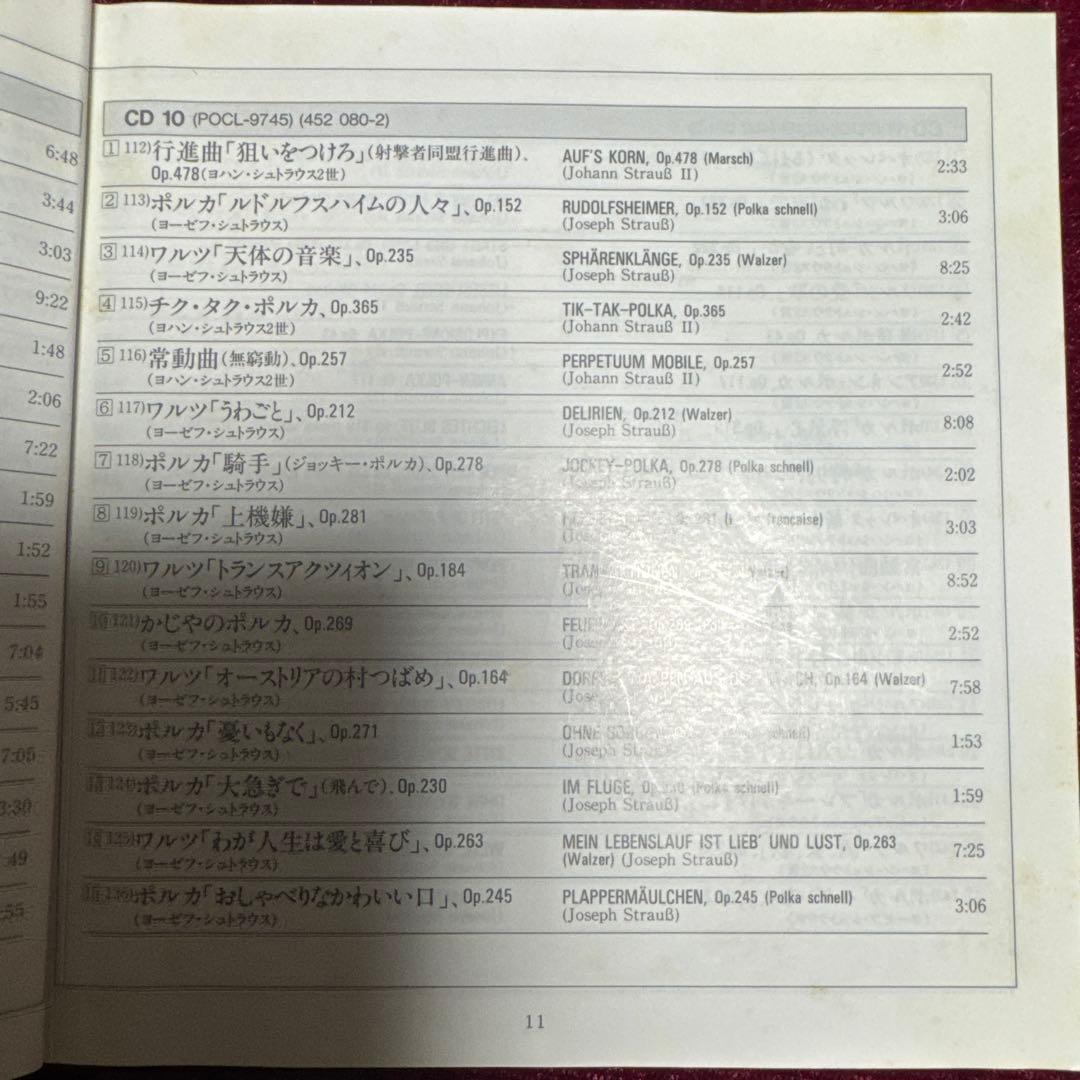 6:48
3:44
3:03
9:22
1:48
2:06
7:22
1:59
1:52
1:55
7:04
5:45
7:05
3:30
:49
:55
CD 10 (POCL-9745) (452 080-2)
1 112)行進曲「狙いをつけろ」(射撃者同盟行進曲)、 AUF'S KORN, Op.478 (Marsch) 2:33
Op.478(ヨハン・シュトラウス2世) (Johann Strauß II)
2 113)ポルカ「ルドルフスハイムの人々」、Op.152 RUDOLFSHEIMER, Op.152 (Polka schnell) 3:06
(ヨーゼフ・シュトラウス) (Joseph Strauß)
3 114)ワルツ「天体の音楽」、Op.235 SPHÄRENKLÄNGE, Op.235 (Walzer) 8:25
(ヨーゼフ・シュトラウス) (Joseph Strauß)
4 115)チク・タク・ポルカ、Op.365 TIK-TAK-POLKA, Op.365 2:42
(ヨハン・シュトラウス2世) (Johann Strauß II)
5 116)常動曲(無窮動)、Op.257 PERPETUUM MOBILE, Op.257 2:52
(ヨハン・シュトラウス2世) (Johann Strauß II)
6 117)ワルツ「うわごと」、Op.212 DELIRIEN, Op.212 (Walzer) 8:08
(ヨーゼフ・シュトラウス) (Joseph Strauß)
7 118)ポルカ「騎手」(ジョッキー・ポルカ)、Op.278 JOCKEY-POLKA, Op.278 (Polka schnell) 2:02
(ヨーゼフ・シュトラウス) (Joseph Strauß)
8 119)ポルカ「上機嫌」、Op.281 française) 3:03
(ヨーゼフ・シュトラウス)
9 120)ワルツ「トランスアクツィオン」、Op.184 8:52
(ヨーゼフ・シュトラウス)
10 121)かじやのポルカ、Op.269 2:52
(ヨーゼフ・シュトラウス)
11 122)ワルツ「オーストリアの村つばめ」、Op.164 Op.164 (Walzer) 7:58
(ヨーゼフ・シュトラウス)
12 123)ポルカ「憂いもなく」、Op.271 OHNE 1:53
(ヨーゼフ・シュトラウス) (Joseph Strauß)
13 124)ポルカ「大急ぎで」(飛んで)、Op.230 IM FLUGE, Op.230 (Polka schnell) 1:59
(ヨーゼフ・シュトラウス) (Joseph Strauß)
14 125)ワルツ「わが人生は愛と喜び」、Op.263 MEIN LEBENSLAUF IST LIEB' UND LUST, Op.263 7:25
(ヨーゼフ・シュトラウス) (Walzer) (Joseph Strauß)
15 126)ポルカ「おしゃべりなかわいい口」、Op.245 PLAPPERMÄULCHEN, Op.245 (Polka schnell) 3:06
(ヨーゼフ・シュトラウス) (Joseph Strauß)
11